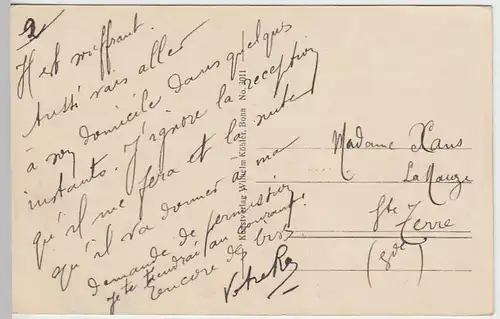 2
Il est souffrant.
Aussi vais aller
à son domicile dans quelques
instants. J'ignore la réception
qu'il me fera et la suite
qu'il va donner à ma
demande de permission
Je te tiendrai au courant.
Encore des bises
Votre
Kunstverlag Wilhelm Köhler, Bonn No. 2011
Madame Xans
La Nauze
Ste
Terre
(Gde)